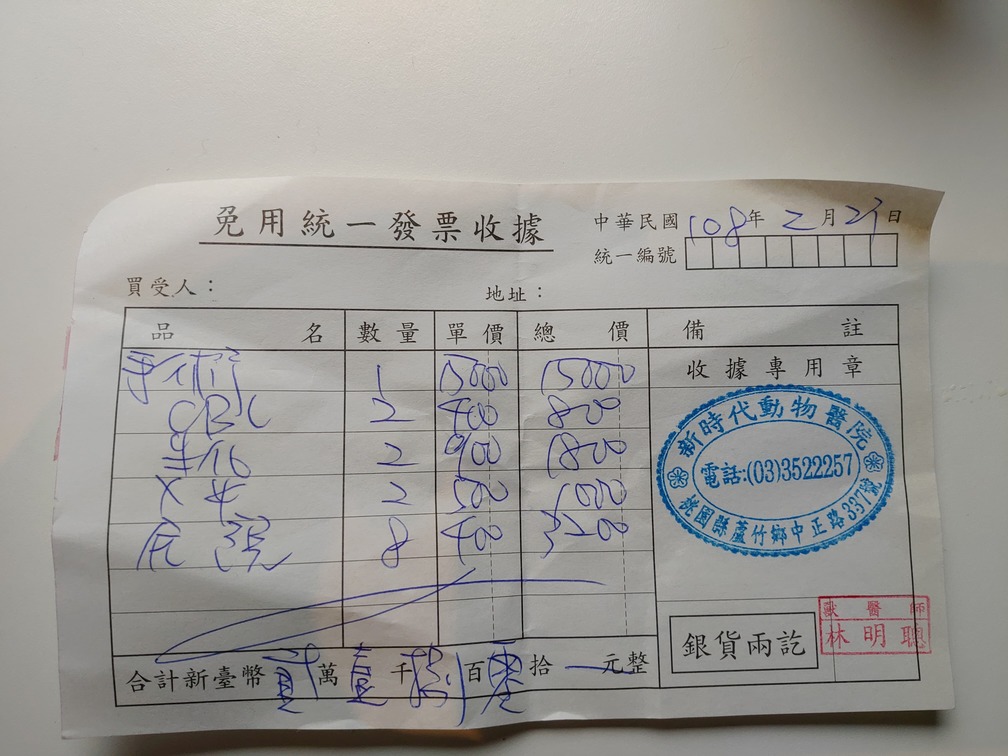 免用統一發票收據
中華民國108年2月 日
統一編號
買受人：
地址：
品名 數量 單價 總價 備註
手術 1 15000 15000
CBC 2 400 800
生化 2 900 1800
X光 2 500 1000
住院 8 400 3200
收據專用章
新時代動物醫院
電話:(03)3522257
桃園縣蘆竹鄉中正路337號
銀貨兩訖
獸醫師
林明聰
合計新臺幣貳萬壹千捌百零拾 元整